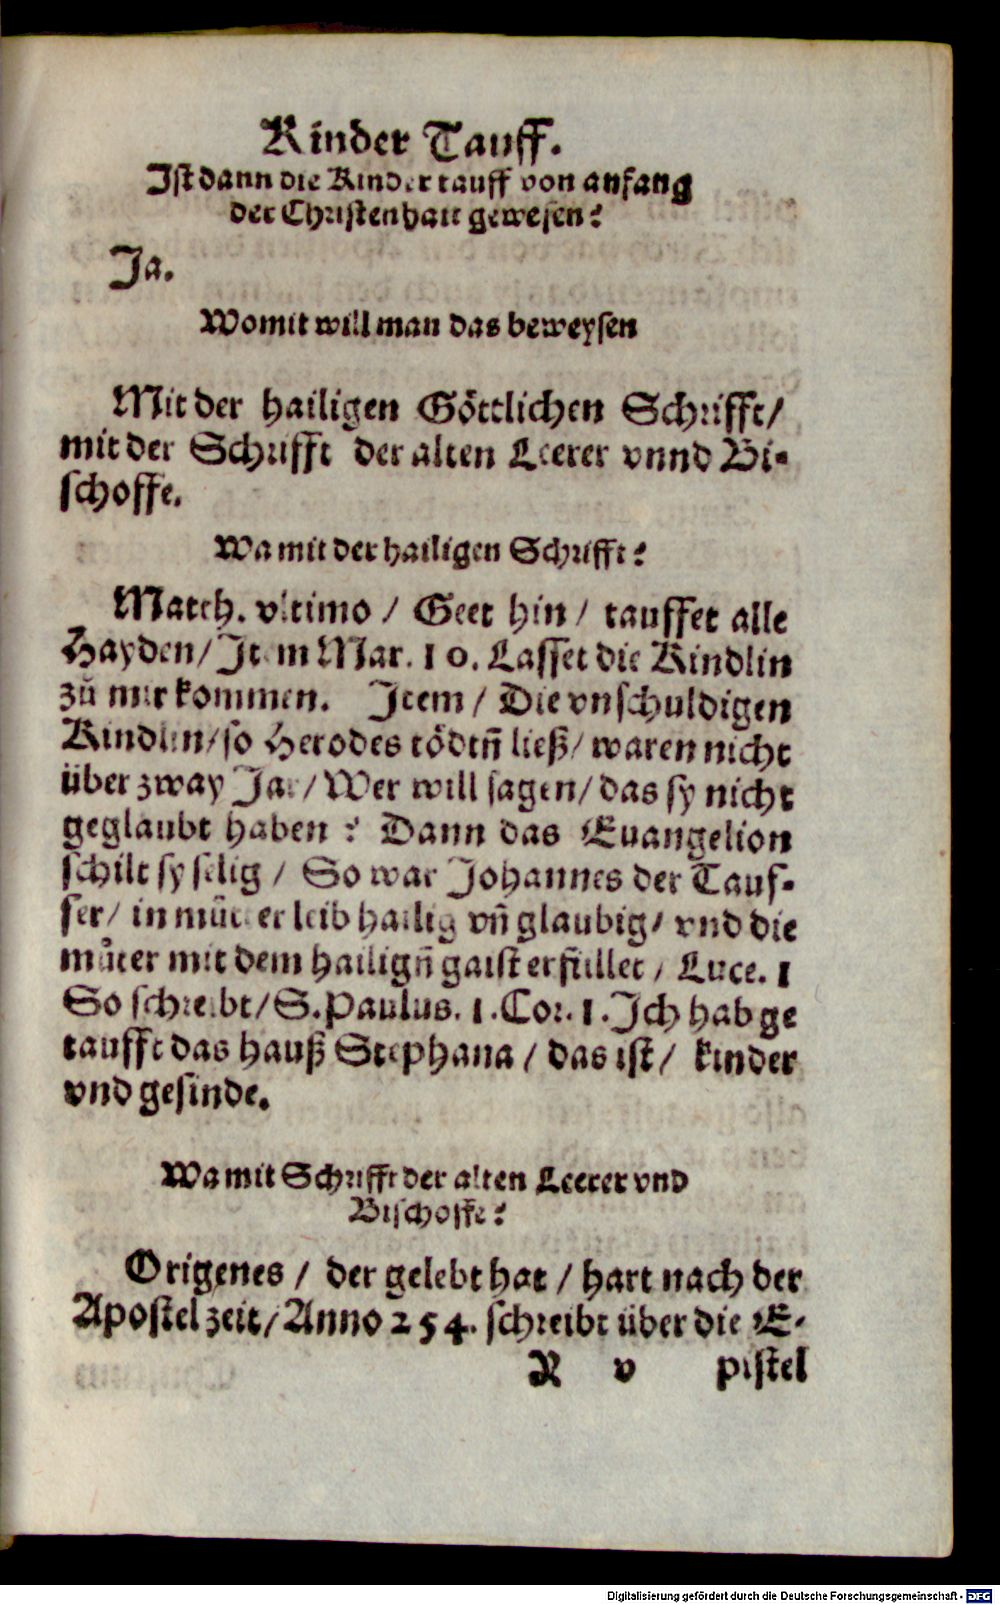 Kinder Tauff.
Ist dann die Kinder tauff von anfang
der Christenhait gewesen?
Ja.
Womit will man das beweysen
Mit der hailigen Göttlichen Schrifft/
mit der Schrifft der alten Leerer vnnd Bi-
schoffe.
Wa mit der hailigen Schrifft?
Matth. vltimo / Geet hin / tauffet alle
Hayden/ Item Mar. 10. Lasset die Kindlin
zů mir kommen. Item / Die vnschuldigen
Kindlin/ so Herodes tödtn̄ ließ/ waren nicht
über zway Jar/ Wer will sagen/ das sy nicht
geglaubt haben? Dann das Euangelion
schilt sy selig / So war Johannes der Tauf-
fer/ in můtter leib hailig vn̄ glaubig/ vnd die
můter mit dem hailign̄ gaist erfüllet / Luce. 1
So schreibt/ S. Paulus. 1. Cor. 1. Ich hab ge
taufft das hauß Stephana / das ist / kinder
vnd gesinde.
Wa mit Schrifft der alten Leerer vnd
Bischoffe?
Origenes / der gelebt hat / hart nach der
Apostel zeit/ Anno 254. schreibt über die E-
R v pistel
Digitalisierung gefördert durch die Deutsche Forschungsgemeinschaft - DFG